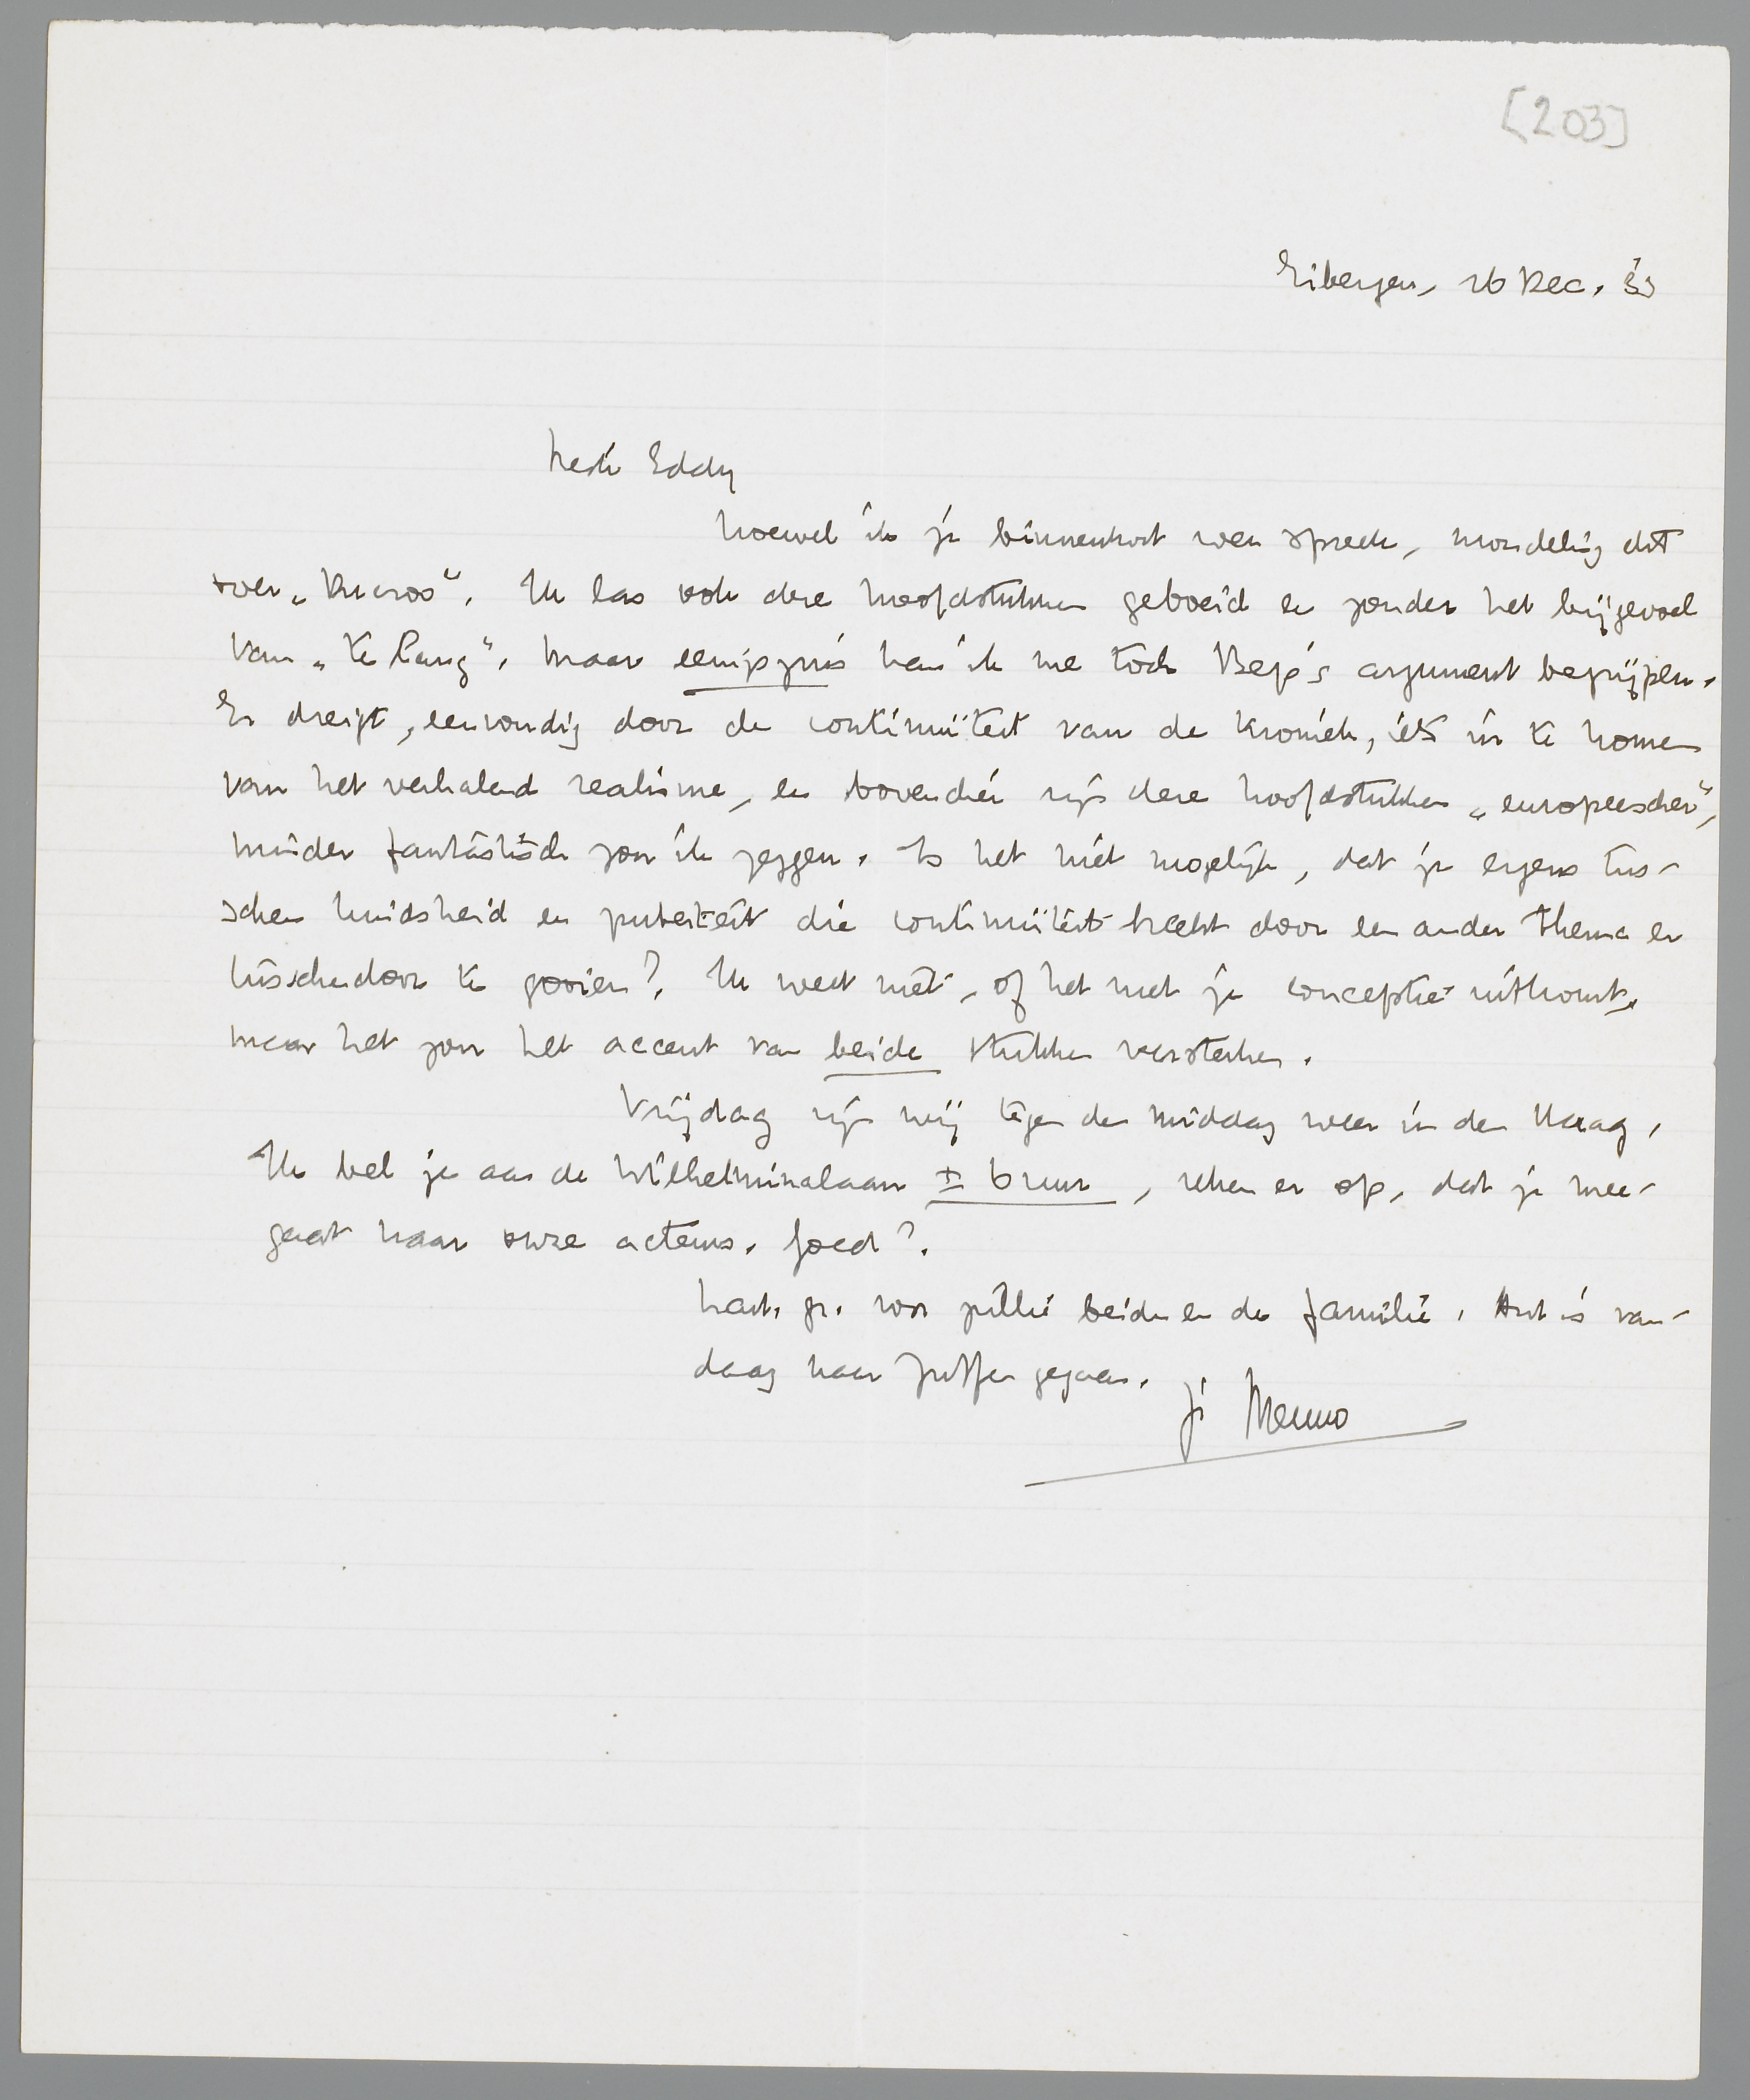 [203]
Eibergen, 26 Dec. 33
Beste Eddy
Hoewel ik je binnenkort weer spreek, mondeling dit
over „Ducroo”. Ik las ook deze hoofdstukken geboeid en zonder het bijgevoel
van „te lang”. Maar eenigszins kan ik me toch Bep's argument begrijpen.
Er dreigt, eenvoudig door de continuïteit van de kroniek, iets in te komen
van het verhalend realisme, en bovendien zijn deze hoofdstukken „europeescher”,
minder fantastisch zou ik zeggen. Is het niet mogelijk, dat je ergens tus-
schen kindsheid en puberteit die continuïteit breekt door een ander thema er
tusschendoor te gooien? Ik weet niet, of het met je conceptie uitkomt,
maar het zou het accent van beide stukken versterken.
Vrijdag zijn wij tegen den middag weer in den Haag.
Ik bel je aan de Wilhelminalaan ± 6 uur, reken er op, dat je mee-
gaat naar onze acteurs. Goed?
hart. gr. voor jullie beiden en de familie. Ant is van-
daag naar Zutfen gegaan.
je Menno